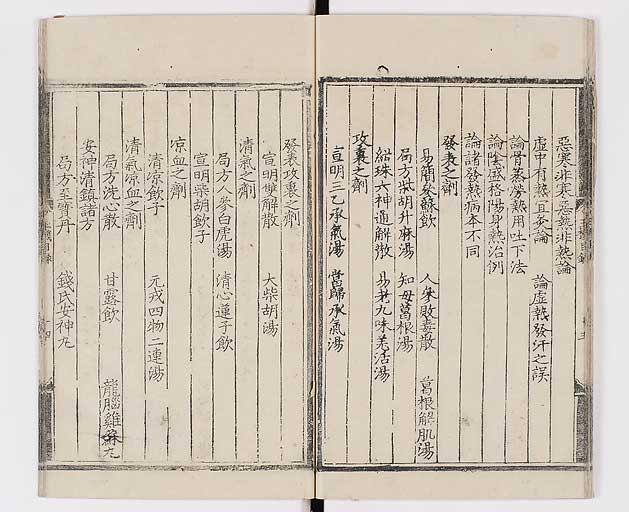 惡寒非寒惡熱非熱論
虛中有熱宜參論　論虛熱發汗之誤
論骨蒸勞熱用吐下法
論陰盛格陽身熱治例
論諸發熱病本不同
發表之劑
易簡參蘇飲　人參敗毒散　葛根解肌湯
局方柴胡升麻湯　知母葛根湯
絡珠六神通解散　易老九味羌活湯
攻裏之劑
宣明三乙承氣湯　當歸承氣湯
發表攻裏之劑
宣明雙解散　大柴胡湯
清氣之劑
局方人參白虎湯　清心蓮子飲
宣明柴胡飲子
凉血之劑
清凉飲子　元戎四物二連湯
清氣凉血之劑
局方洗心散　甘露飲　龍腦雞蘇丸
安神清鎮諸方
局方至寶丹　錢氏安神丸